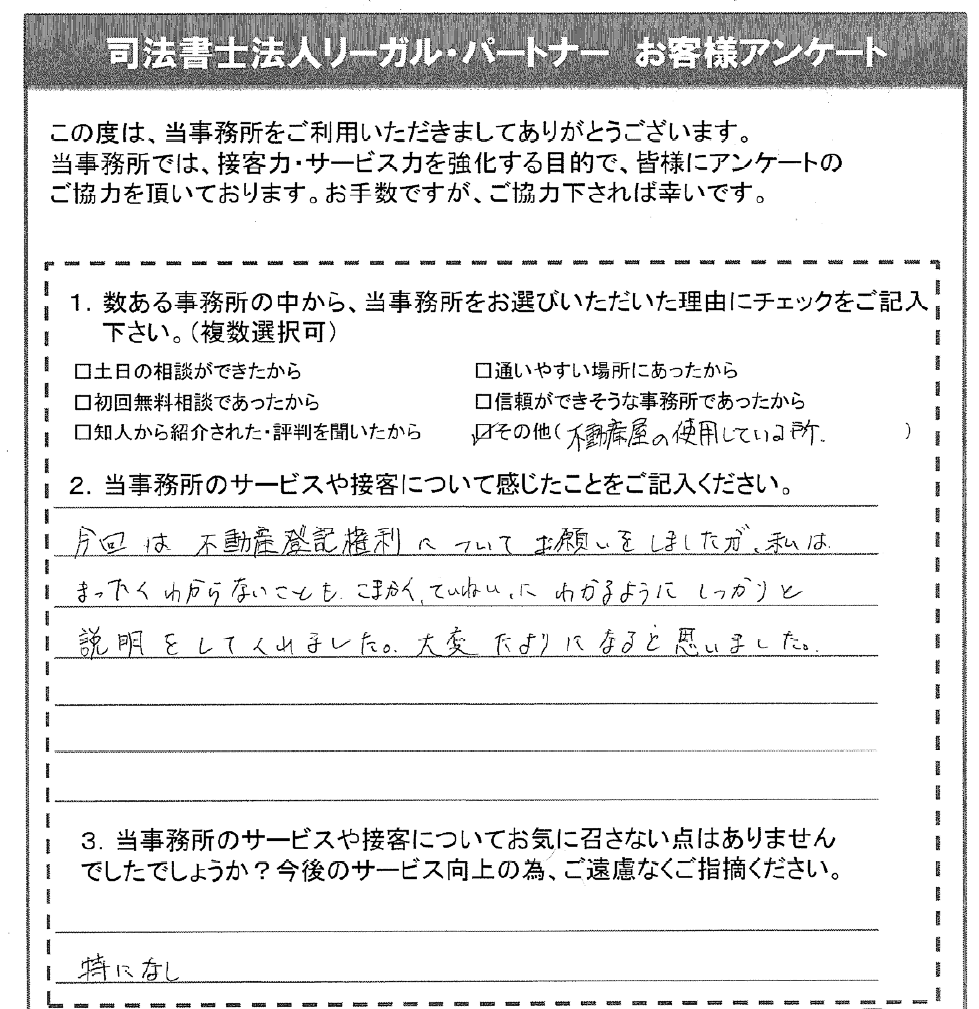 司法書士法人リーガル・パートナー お客様アンケート
この度は、当事務所をご利用いただきましてありがとうございます。
当事務所では、接客力・サービス力を強化する目的で、皆様にアンケートの
ご協力を頂いております。お手数ですが、ご協力下されば幸いです。
1. 数ある事務所の中から、当事務所をお選びいただいた理由にチェックをご記入
下さい。(複数選択可)
□土日の相談ができたから □通いやすい場所にあったから
□初回無料相談であったから □信頼ができそうな事務所であったから
□知人から紹介された・評判を聞いたから ☑その他(不動産屋の使用している所. )
2. 当事務所のサービスや接客について感じたことをご記入ください。
今回は 不動産登記権利について お願いをしましたが、私は
まったくわからないことも こまかく、ていねいに わかるように しっかりと
説明をしてくれました。大変 たよりになると思いました。
3. 当事務所のサービスや接客についてお気に召さない点はありません
でしたでしょうか?今後のサービス向上の為、ご遠慮なくご指摘ください。
特になし